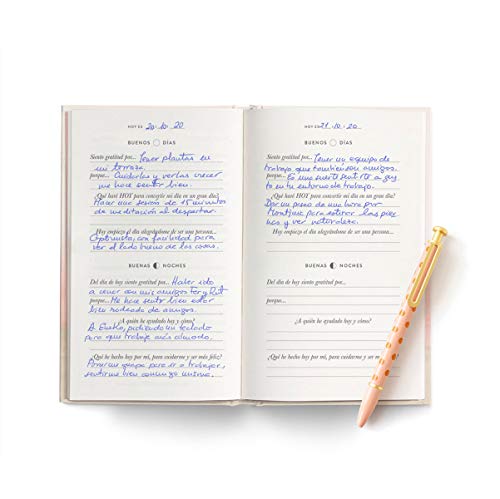 HOY ES 20.10.20
BUENOS DÍAS
Siento gratitud por... Tener plantas en
mi terraza.
porque... Cuidarlas y verlas crecer
me hace sentir bien.
¿Qué haré HOY para convertir mi día en un gran día?
Hacer una sesión de 15 minutos
de meditación al despertar.
Hoy empiezo el día alegrándome de ser una persona...
Optimista, con facilidad para
ver el lado bueno de las cosas.
BUENAS NOCHES
Del día de hoy siento gratitud por... Haber ido
a cenar con mis amigos
porque... Me hace sentir bien estar
bien rodeada de amigos.
¿A quién he ayudado hoy y cómo?
A pidiendo un teclado
para que trabaje más cómodo.
¿Qué he hecho hoy por mí, para cuidarme y ser más feliz?
Ponerme guapa para ir a trabajar,
sentirme bien conmigo misma.
HOY ES 21.10.20
BUENOS DÍAS
Siento gratitud por... Tener un equipo de
trabajo que también son amigos.
porque... Es una suerte sentirte a gus
to en tu entorno de trabajo.
¿Qué haré HOY para convertir mi día en un gran día?
Dar un paseo de una hora por
Montjuic para estirar las pier
nas y ver naturaleza.
Hoy empiezo el día alegrándome de ser una persona...
BUENAS NOCHES
Del día de hoy siento gratitud por...
porque...
¿A quién he ayudado hoy y cómo?
¿Qué he hecho hoy por mí, para cuidarme y ser más feliz?